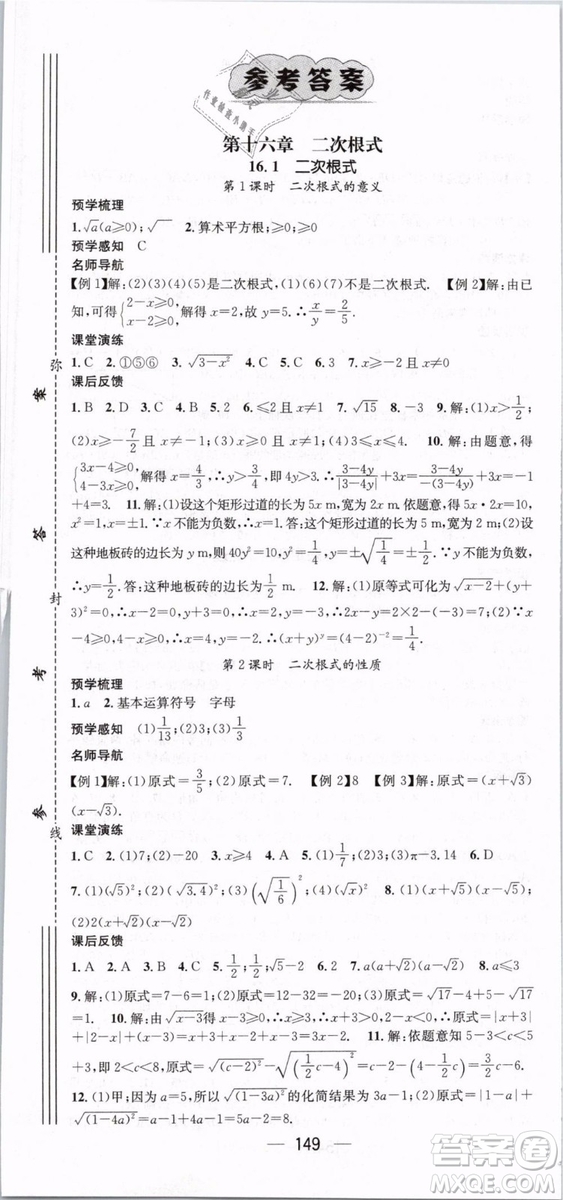 参考答案
第十六章 二次根式
16.1 二次根式
第1课时 二次根式的意义
预学梳理
1.√a(a≥0);√ 2.算术平方根;≥0;≥0
预学感知 C
名师导航
【例1】解:(2)(3)(4)(5)是二次根式,(1)(6)(7)不是二次根式. 【例2】解:由已
知,可得{2-x≥0, x-2≥0,解得x=2,故y=5,∴x/y=2/5.
课堂演练
1.C 2.①⑤⑥ 3.√(3-x²) 4.C 5.A 6.C 7.x≥-1且x≠0
课后反馈
1.B 2.D 3.A 4.D 5.2 6.≤2且x≠1 7.√15 8.-3 9.解:(1)x>1/2;
(2)x≥-7/2且x≠-1;(3)x≥-4且x≠2. 10.解:由题意,得
{3x-4≥0, 4-3x≥0,解得x=4/3,把x=4/3代入,得|3-4y|/|3-4y|=(3-4y)/(3-4y)
+4=3. 11.解:(1)设这个矩形过道的长为5x m,宽为2x m.依题意,得5x·2x=10,
x²=1,∴x=±1.∵x不能为负数,∴x=1.答:这个矩形过道的长为5 m,宽为2 m;(2)设
这种地板砖的边长为y m,则40y²=10,y²=1/4,∴y=±√(1/4)=±1/2.∵y不能为负
数,∴y=1/2.答:这种地板砖的边长为1/2 m. 12.解:(1)原等式可化为√(x-2)+(y+
3)²=0,∴x-2=0,y+3=0,∴x=2,y=-3,∴x-2y=2-2×(-3)=8;(2)∵x-4≥0,4
-x≥0,∴x≥4,x≤4.∴x=4,∴y=2,∴(x-y)²=(4-2)⁻²=1/(4-2)²=1/4.
第2课时 二次根式的性质
预学梳理
1.a a 2.基本运算符号 字母
预学感知 (1)1/13;(2)3;(3)1/5
名师导航
【例1】解:(1)原式=3/5;(2)原式=7. 【例2】8 【例3】解:(1)原式=(x+√3)
(x-√3).
课堂演练
1.C 2.A 3.(1)7;(2)-20 4.x≥4 5.(1)1/7;(2)3;(3)π-3.14 6.D
7.(1)(√5)²;(2)(√3.49)²;(3)(√(1/6))²;(4)(√x)² 8.(1)(x+√5)(x-√5);
(2)2(x+√2)(x-√2)
课后反馈
1.A 2.A 3.D 4.D 5.1/2;1/2;√5-1/2 6.2 7.a(a+√2)(a-√2) 8.a≤3
9.解:(1)原式=7-6=1;(2)原式=7-7=0;(3)原式=√17-4+5-√17
=1. 10.解:由√(x-3)有意义,得x≥3,∴原式=x+x-3+x+2=3x-1. 11.解:依题意可
得2<c<8,∴原式=√(c-2)²-√(1/2c-4)²=c-2-(4-1/2c)=3/2c-6.
12.(1)甲;因为a=5,所以√(1-3a)²的化简结果应为3a-1;(2)原式=|1-a|+
√(1-4a)²=a-1+4a-1=5a-2=8.
149